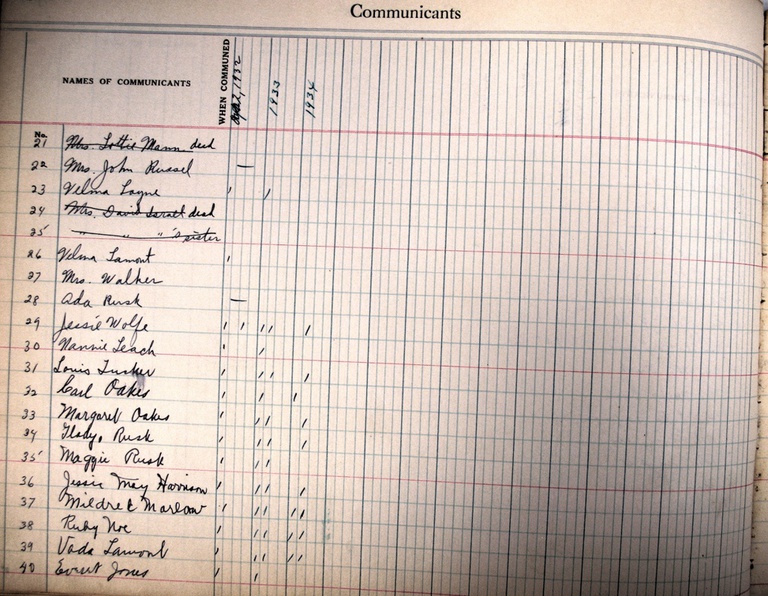 Communicants
NAMES OF COMMUNICANTS
WHEN COMMUNED
1932
1933
1934
No.
21 Mrs. Lottie Mann dead
22 Mrs. John Russel
23 Velma Layne
24 Mrs. David Israel dead
25 " " "'s sister
26 Velma Lamont
27 Mrs. Walker
28 Ada Rusk
29 Jessie Wolfe
30 Nannie Leach
31 Louis Tucker
32 Carl Oakes
33 Margaret Oakes
34 Gladys Rusk
35 Maggie Rusk
36 Jessie May Harrison
37 Mildred Marlow
38 Ruby Noe
39 Vada Lamont
40 Everet Jones